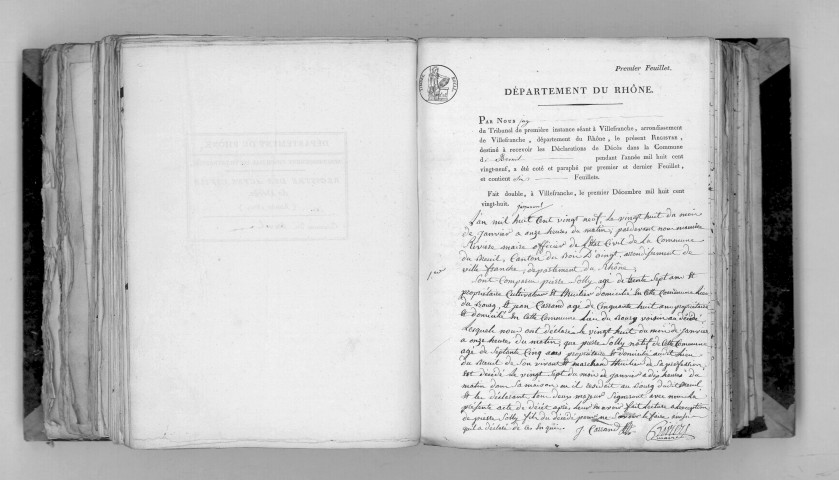 Premier Feuillet.
DÉPARTEMENT DU RHÔNE.
PAR NOUS juge
du Tribunal de première instance séant à Villefranche, arrondissement
de Villefranche, département du Rhône, le présent REGISTRE,
destiné à recevoir les Déclarations de Décès dans la Commune
d u Breuil pendant l'année mil huit cent
vingt-neuf, a été coté et paraphé par premier et dernier Feuillet,
et contient six Feuillets.
Fait double, à Villefranche, le premier Décembre mil huit cent
vingt-huit.
L'an mil huit Cent vingt neuf, le vingt huit du mois
de janvier a onze heures du matin, pardevant nous
Riviere maire officier de l'état Civil de La Commune
du Breuil, Canton du Bois D'oingt, arrondissement de
ville franche, departement du Rhône,
Sont Comparu pierre Solly agé de trente Sept ans et
propriétaire Cultivateur et domicilié en Cette Commune Lieu
du Bourg, et jean Cassand agé de Cinquante huit ans propriétaire
et domicilié en Cette Commune Lieu du Bourg voisin au décédé
Lesquels nous ont déclaré le vingt huit du mois de janvier
a onze heures du matin, que pierre Solly natif de Cette Commune
agé de Septante Cinq ans propriétaire et domicilié audit Lieu
du Breuil de Son vivant marchand de Sa profession
est décédé le vingt Sept du mois de janvier a dix heures du
matin dans Sa maison ou il residoit au Bourg dudit Breuil
et les déclarant tous deux majeur Signeront avec nous le
présente acte de décès après leur en avoir fait lecture a l'exception
de pierre Solly fils du décédé pour ne Savoir le faire ainsi
qu'il a déclaré de ce enquis.
J. Cassand
Riviere
maire